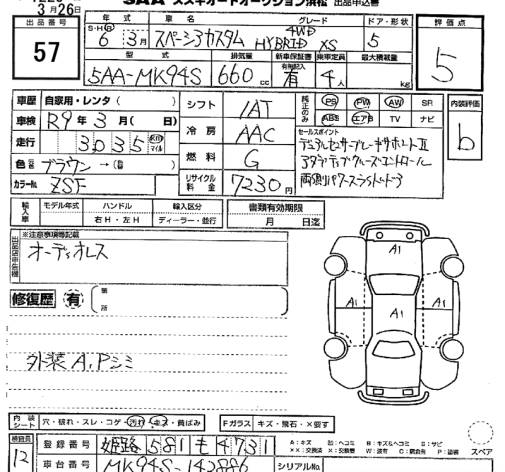 SAA スズキオートオークション浜松 出品申込書
3月26日
出品番号 57
年式 S・H・R 6年3月
車名 スペーシアカスタム
グレード 4WD HYBRID XS
ドア・形状 5
評価点 5
型式 5AA-MK94S
排気量 660 cc
新車保証書 有
乗車定員 4人
最大積載量 kg
車歴 自家用・レンタ( )
シフト IAT
純正のみ PS PW AW SR
ABS エアB TV ナビ
内装評価 b
車検 R9年3月( 日)
冷房 AAC
セールスポイント
デュアルセンサーブレーキサポートⅡ
アダプティブクルーズコントロール
両側パワースライドドア
走行 3035 km マイル
燃料 G
色 ブラウン→( )
カラーNo. ZSF
リサイクル料金 7230円
輸入車 モデル年式 ハンドル 右H・左H 輸入区分 ディーラー・並行
書類有効期限 月 日迄
※注意事項等記載
オーディオレス
修復歴 有 箇所
A1
A1 A1 A1
外装A,Pシミ
内装シート 穴・破れ・スレ・コゲ・汚れ・キズ・黄ばみ
Fガラス キズ・飛石・×要す
検査員 12
登録番号 姫路581も4731
A:キズ 凹:ヘコミ B:キズ&ヘコミ S:サビ
スペア
車台番号 MK94S-142886
シリアルNo.